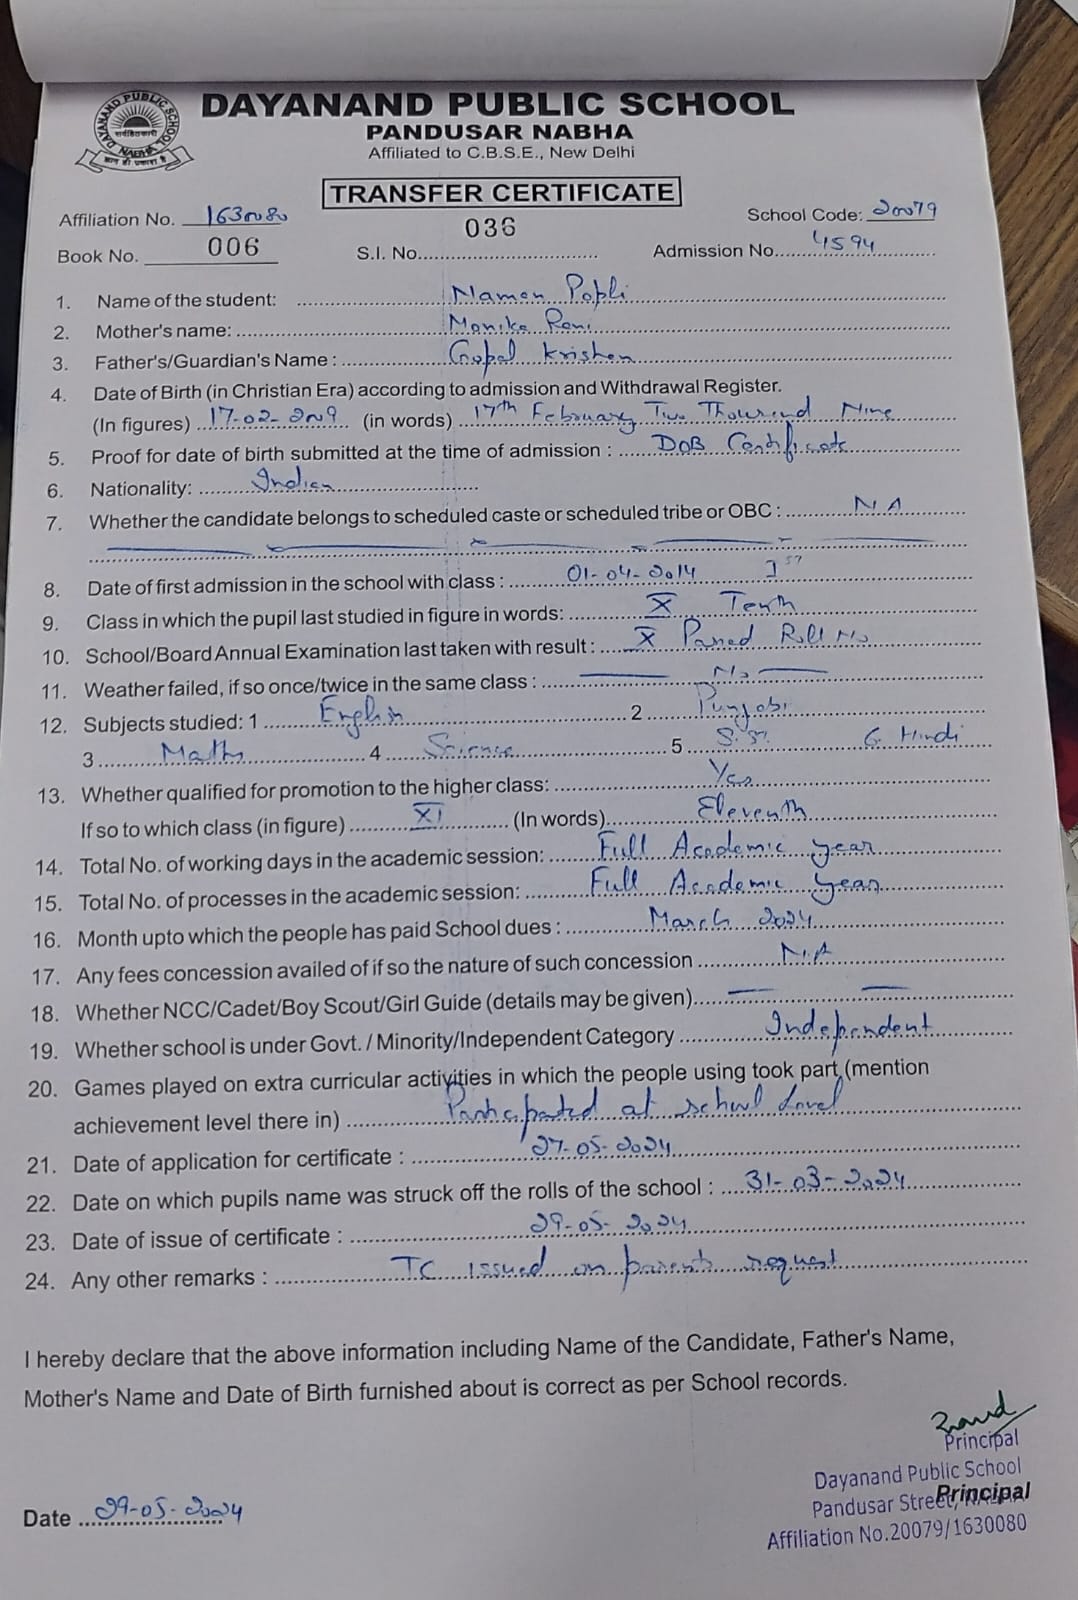 DAYANAND PUBLIC SCHOOL
NABHA
DAYANAND PUBLIC SCHOOL
PANDUSAR NABHA
Affiliated to C.B.S.E., New Delhi
TRANSFER CERTIFICATE
Affiliation No. 1630080 School Code: 20079
Book No. 006 S.I. No. 036 Admission No. 4594
1. Name of the student: Naman Popli
2. Mother's name: Monika Rani
3. Father's/Guardian's Name : Gopal Krishan
4. Date of Birth (in Christian Era) according to admission and Withdrawal Register.
(In figures) 17-02-2009 (in words) 17th February Two Thousand Nine
5. Proof for date of birth submitted at the time of admission : DOB Certificate
6. Nationality: Indian
7. Whether the candidate belongs to scheduled caste or scheduled tribe or OBC : N.A
8. Date of first admission in the school with class : 01-04-2014 Ist
9. Class in which the pupil last studied in figure in words: X Tenth
10. School/Board Annual Examination last taken with result : X Passed Roll No
11. Weather failed, if so once/twice in the same class : No
12. Subjects studied: 1 English 2 Punjabi
3 Maths 4 Science 5 S.St. 6 Hindi
13. Whether qualified for promotion to the higher class: Yes
If so to which class (in figure) XI (In words) Eleventh
14. Total No. of working days in the academic session: Full Academic year
15. Total No. of processes in the academic session: Full Academic year
16. Month upto which the people has paid School dues : March 2024
17. Any fees concession availed of if so the nature of such concession N.A
18. Whether NCC/Cadet/Boy Scout/Girl Guide (details may be given)
19. Whether school is under Govt. / Minority/Independent Category Independent
20. Games played on extra curricular activities in which the people using took part (mention
achievement level there in) Participated at school level
21. Date of application for certificate : 27-05-2024
22. Date on which pupils name was struck off the rolls of the school : 31-03-2024
23. Date of issue of certificate : 29-05-2024
24. Any other remarks : TC issued on parents request
I hereby declare that the above information including Name of the Candidate, Father's Name,
Mother's Name and Date of Birth furnished about is correct as per School records.
Principal
Dayanand Public School
Pandusar Street,
Principal
Affiliation No.20079/1630080
Date 29-05-2024